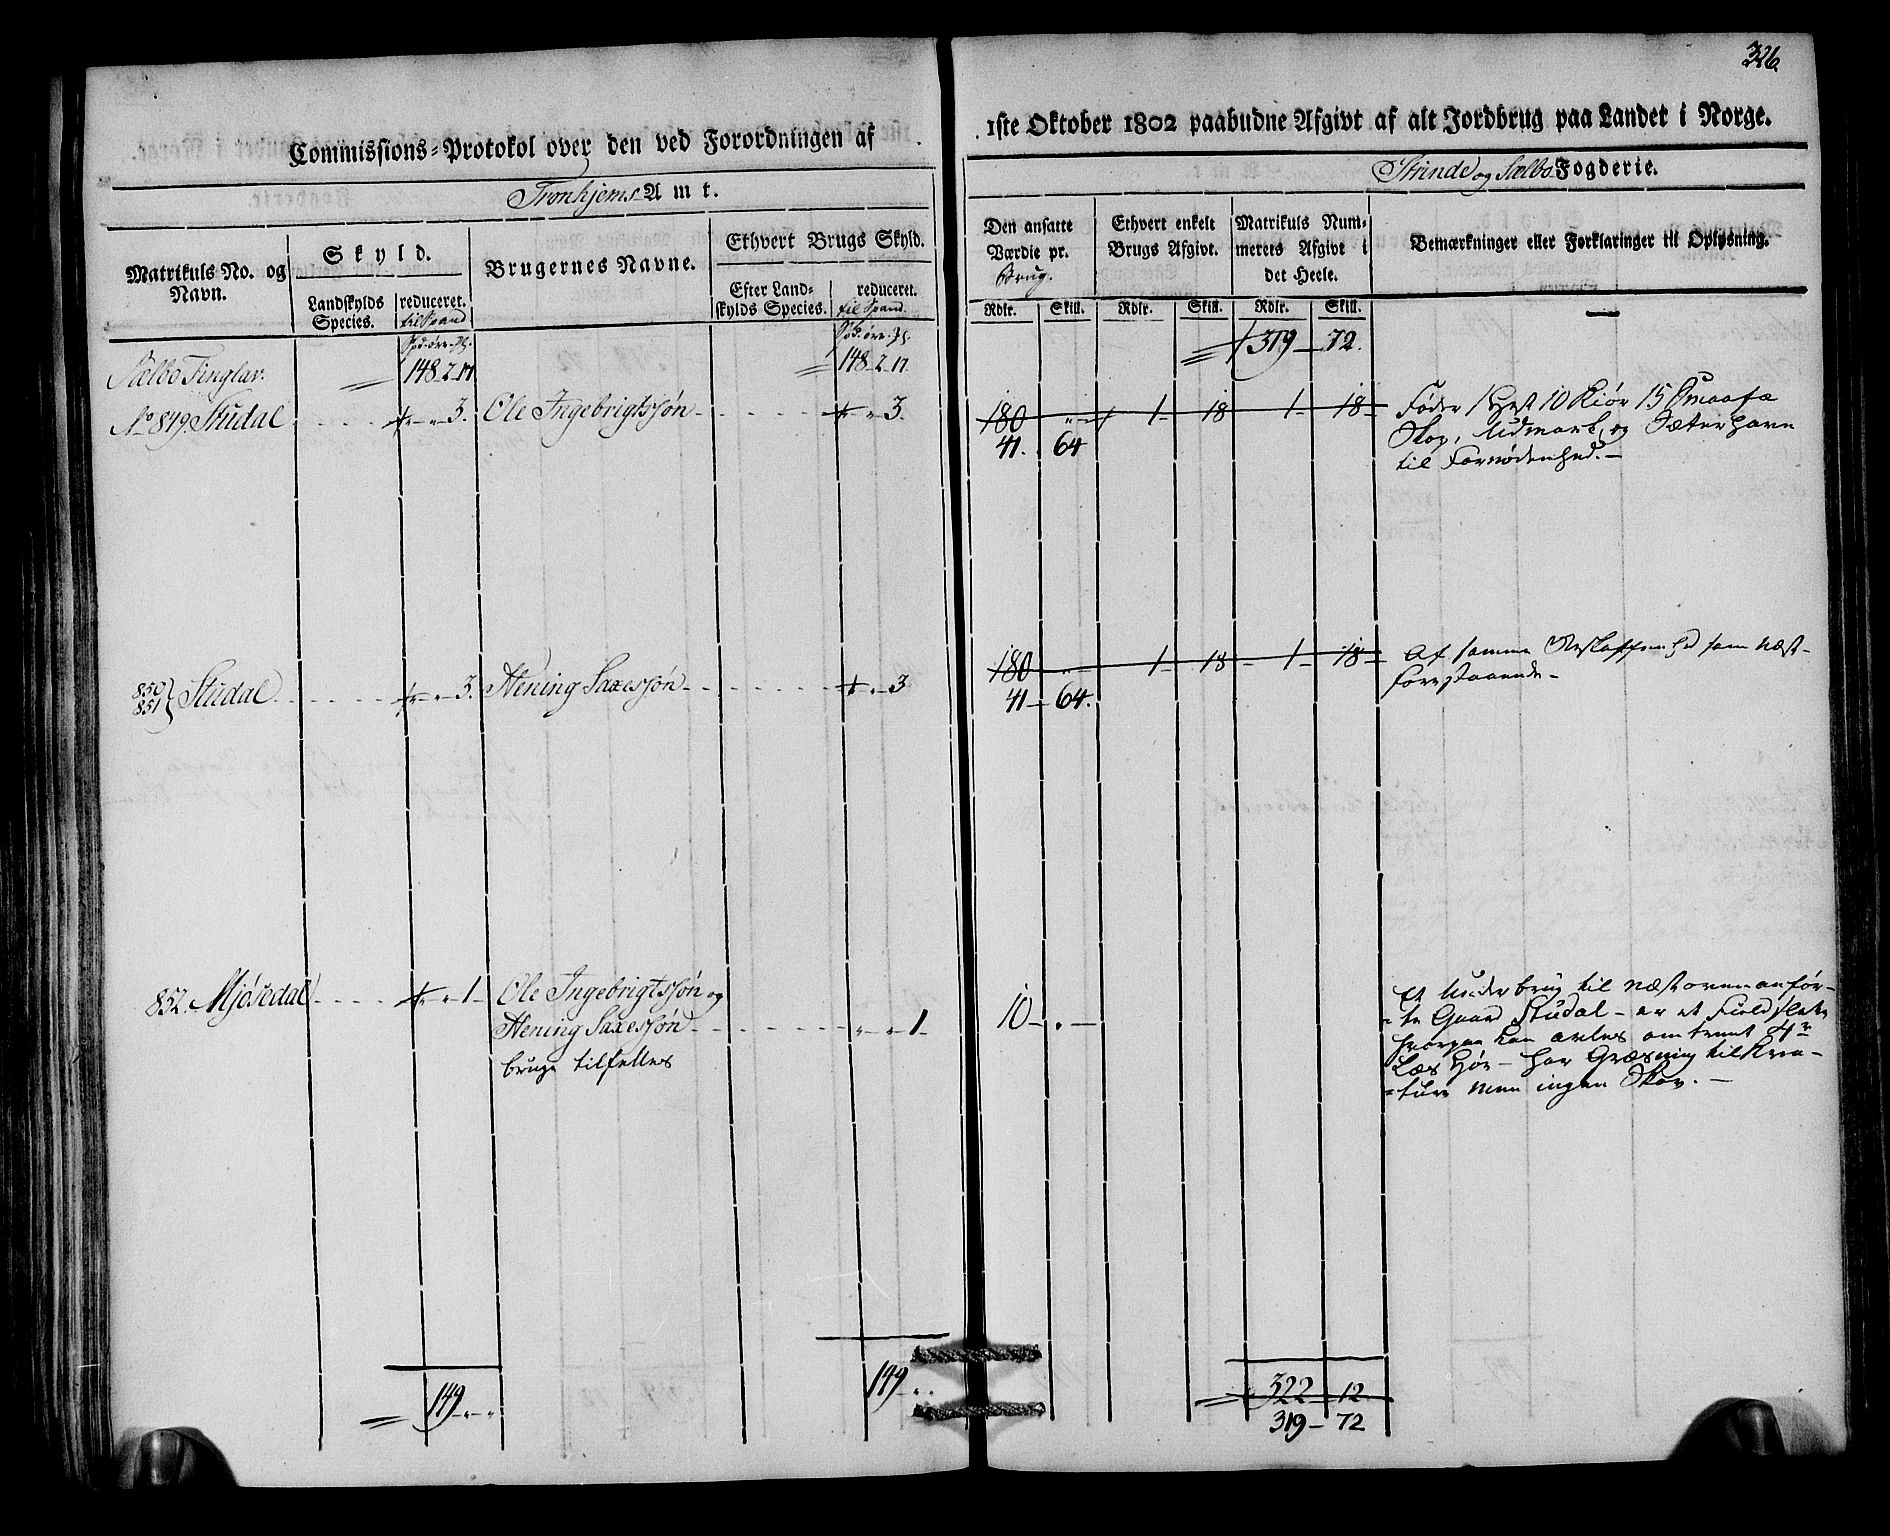 326.
Commissions-Protokol over den ved Forordningen af
1ste Oktober 1802 paabudne Afgivt af alt Jordbrug paa Landet i Norge.
Tronhjems Amt.
Strinde og Sælbo Fogderie.
Matrikuls No. og Navn.
Skyld.
Landskylds Species.
reduceret. til Spand
Brugernes Navne.
Ethvert Brugs Skyld.
Efter Landskylds Species.
reduceret. til Spand.
Den ansatte Værdie pr. Brug.
Ethvert enkelt Brugs Afgivt.
Matrikuls Nummerets Afgivt i det Heele.
Bemærkninger eller Forklaringer til Oplysning.
Rdlr. Skill. Rdlr. Skill. Rdlr. Skill.
Sælbo Tinglav. 148-2-17 148-2-17 319-72.
No 849. Studal - - - " - " - 3. Ole Ingebrigtssøn - - - " - 3. 180 " 1-18 1-18-
41. 64
Føder 1 Hest 10 Kiør 15 Smaafæ
Skov, Udmark, og Sæterhavn
til Fornødenhed. -
850
851 } Studal - - - " - " - 3. Hening Saxessøn - - - " - 3 180 - 1-18 - 1-18-
41-64.
Af samme Beskaffenhed som næst-
forestaaende -
852. Mjösedal - - - " - " - 1- Ole Ingebrigtssøn og
Hening Saxessøn - - - " - " - 1- 10 - . -
bruge tilfelles
Et Underbrug til næstovenanför-
te Gaard Studal - er et Fieldslet
hvorpaa kan avles omtrent 4r
Læs Høe - har Græsning til Krea-
ture men ingen Skov. -
149 - " - " 149 - " . 322-12
319-72